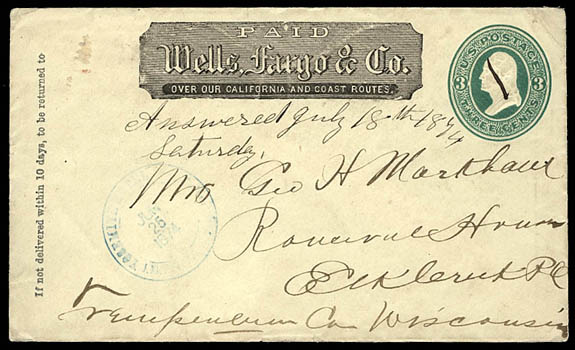 PAID
Wells, Fargo & Co.
OVER OUR CALIFORNIA AND COAST ROUTES.
U.S. POSTAGE
3 3
THREE CENTS
If not delivered within 10 days, to be returned to
Answered July 18th 1874
Saturday,
Mrs Geo H Markham
Elk Creek P.O
Trempealeau Co Wisconsin